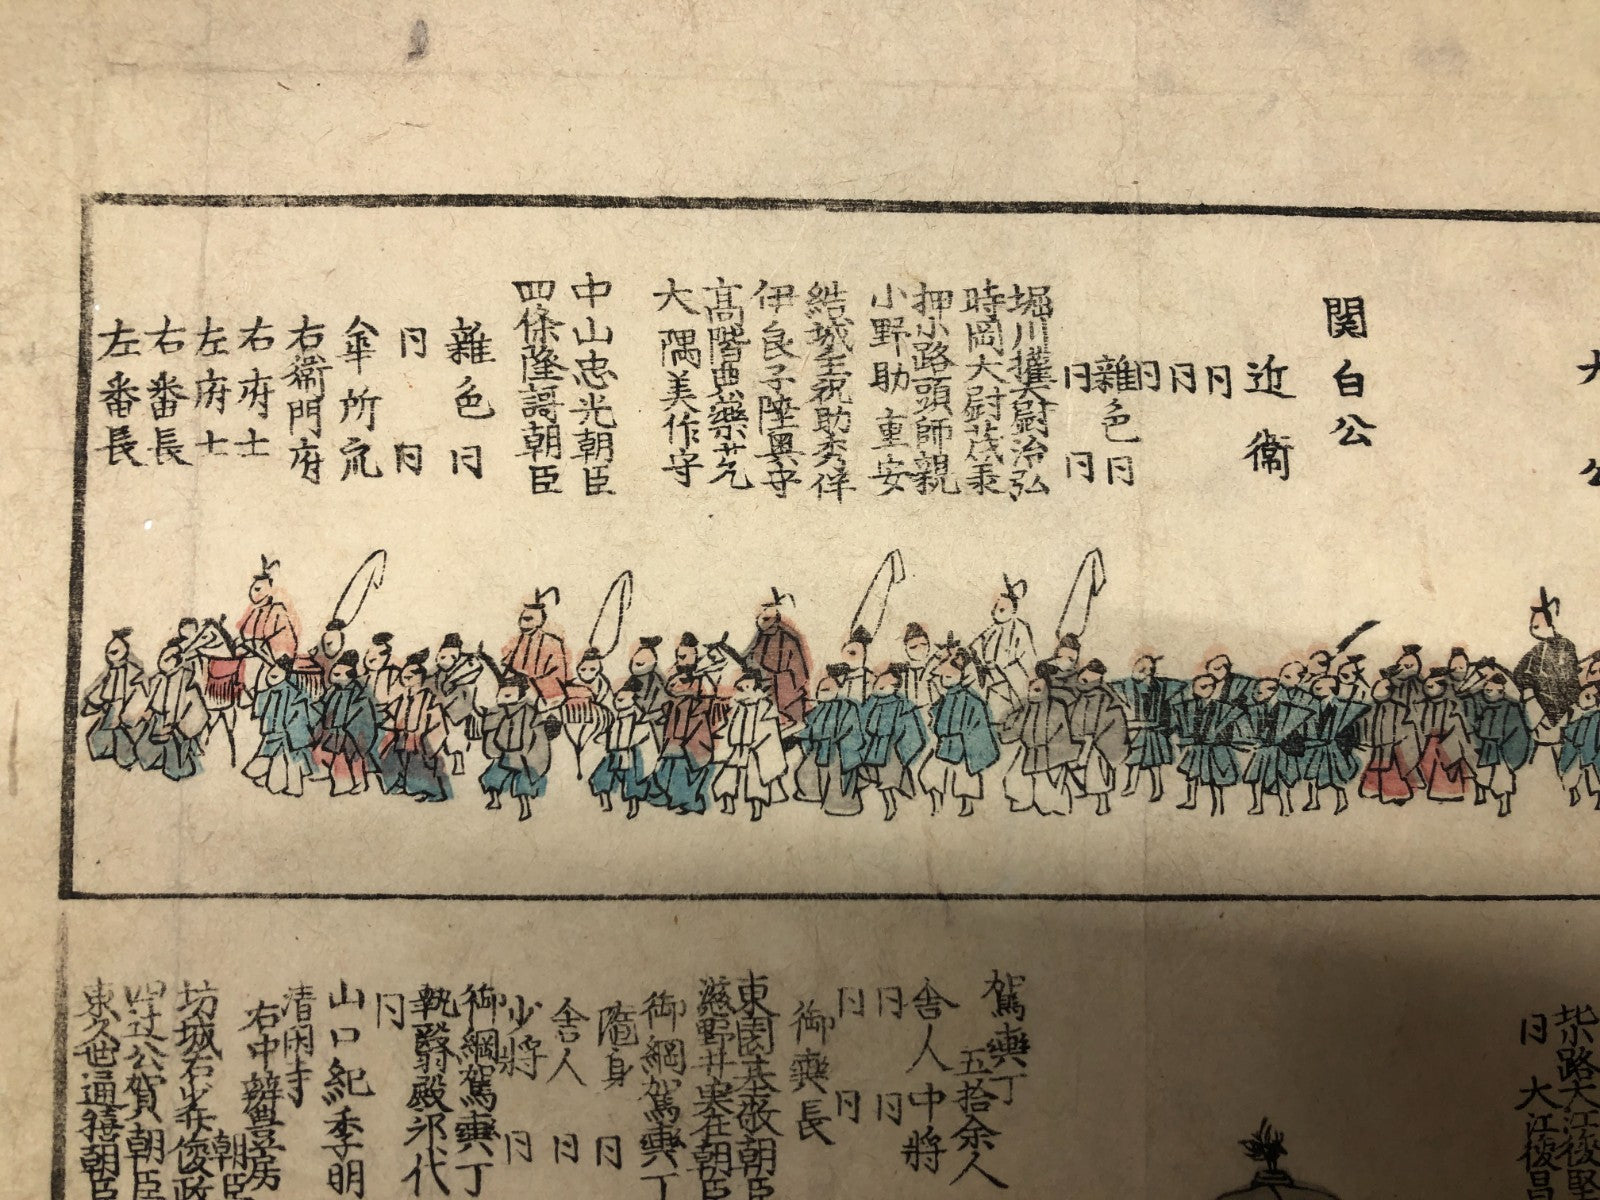 関白公
近衞
同
同
同
雜色同
同同
堀川攝大尉治弘
時岡大尉茂秉
押小路頭師親
小野助重安
結城主祝助秀伴
伊良子陸奥守
高階典藥
大隅美作守
中山忠光朝臣
四條隆謌朝臣
雜色同
同同
伞所衆
右衞門府
右府士
左府士
右番長
左番長
北小路大江俊堅
同大江俊昌
駕輿丁
五拾余人
舎人中將
同同
同同
御輿長
東園基敬朝臣
滋野井実在朝臣
御綱駕輿丁
隨身同
舎人同
少將同
御綱駕輿丁
執翳殿邪代
同
山口紀季明
清閑寺
右中辨豊房
朝臣
坊城右少弁俊政
四辻公賀朝臣
東久世通禧朝臣